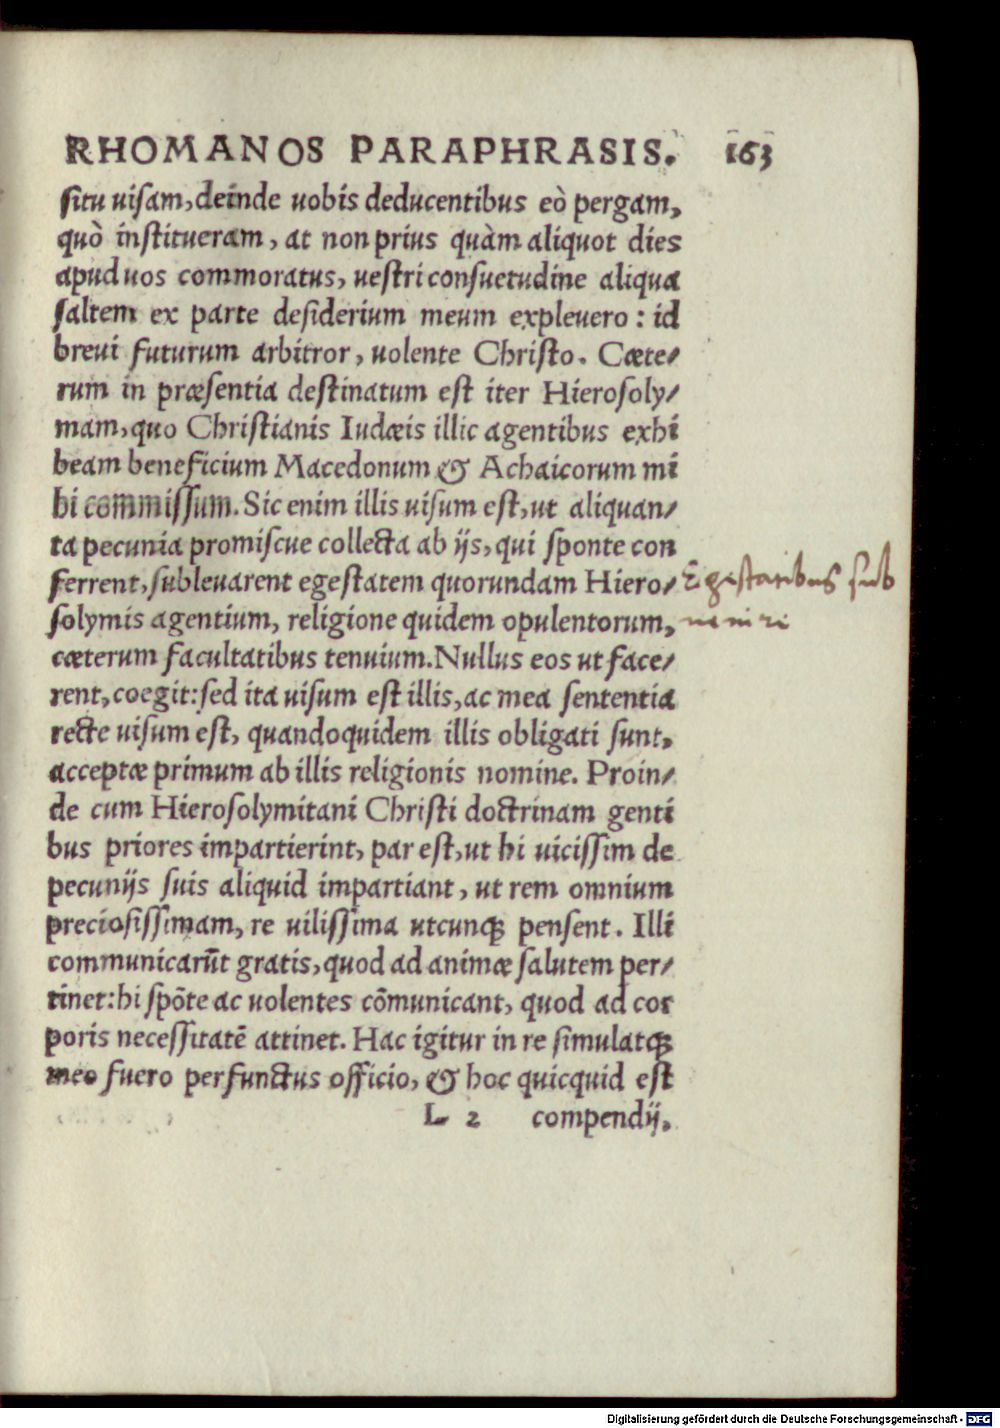 RHOMANOS PARAPHRASIS. 163
situ uisam, deinde uobis deducentibus eò pergam,
quò institueram, at non prius quàm aliquot dies
apud uos commoratus, uestri consuetudine aliqua
saltem ex parte desiderium meum expleuero: id
breui futurum arbitror, uolente Christo. Cæte/
rum in præsentia destinatum est iter Hierosoly/
mam, quo Christianis Iudæis illic agentibus exhi
beam beneficium Macedonum & Achaicorum mi
hi commissum. Sic enim illis uisum est, ut aliquan/
ta pecunia promiscue collecta ab ijs, qui sponte con
ferrent, subleuarent egestatem quorundam Hiero/
Egestatibus sub
solymis agentium, religione quidem opulentorum,
ueniri
cæterum facultatibus tenuium. Nullus eos ut face/
rent, coegit: sed ita uisum est illis, ac mea sententia
recte uisum est, quandoquidem illis obligati sunt,
acceptæ primum ab illis religionis nomine. Proin/
de cum Hierosolymitani Christi doctrinam genti
bus priores impartierint, par est, ut hi uicissim de
pecunijs suis aliquid impartiant, ut rem omnium
preciosissimam, re uilissima utcunq; pensent. Illi
communicarūt gratis, quod ad animæ salutem per/
tinet: hi spōte ac uolentes cōmunicant, quod ad cor
poris necessitatē attinet. Hac igitur in re simulatq;
meo fuero perfunctus officio, & hoc quicquid est
L 2 compendij,
Digitalisierung gefördert durch die Deutsche Forschungsgemeinschaft - DFG